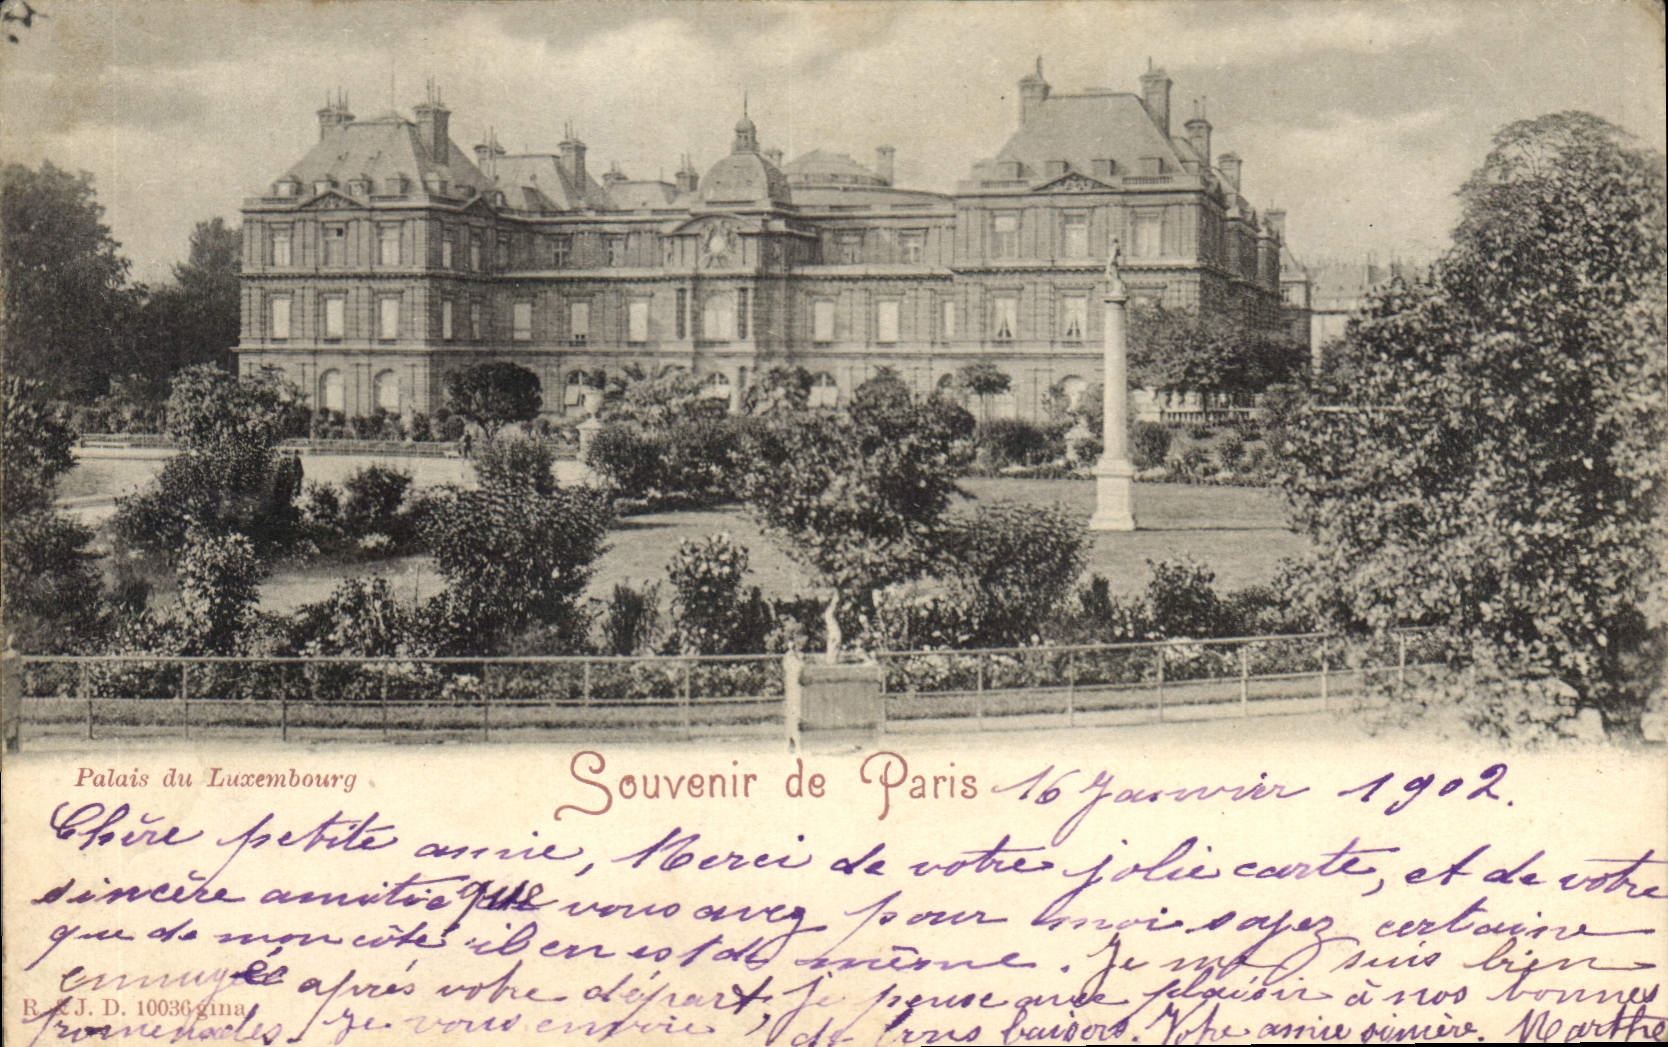 Palais du Luxembourg
Souvenir de Paris 16 Janvier 1902.
Chère petite amie, Merci de votre jolie carte, et de votre
sincère amitié que vous avez pour moi soyez certaine
que de mon côté il en est de même. Je me suis bien
ennuyée après votre départ, je pense avec plaisir à nos bonnes
R. & J. D. 10036 gina
promenades. Je vous envoie de bons baisers. Votre amie sincère. Marthe